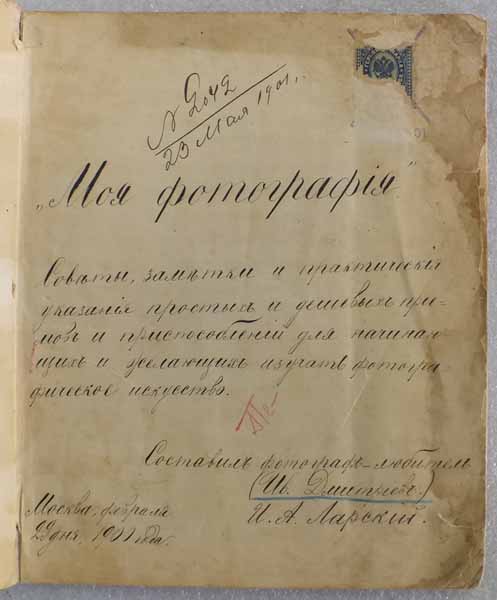 N 2042
23 Мая 1901 г.
„Моя фотографія"
Совѣты, замѣтки и практическія
указанія простыхъ и дешевыхъ при-
мовъ и приспособленій для начинаю-
щихъ и желающихъ изучать фотогра-
фическое искусство.
Составилъ фотографъ-любитель
(Ив. Дмитріевъ.)
И. А. Ларскій.
Москва, февраля
28 дня, 1901 года.